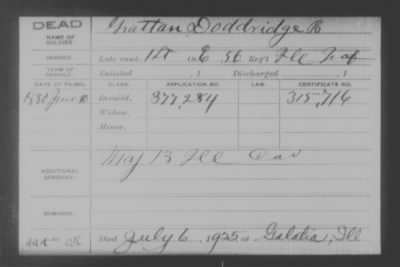 DEAD
NAME OF SOLDIER: Grattan, Doddridge B
SERVICE: Late rank, 1st Co. E 56 Reg't Ill Inf
TERM OF SERVICE: Enlisted , 1 Discharged , 1
DATE OF FILING. CLASS. APPLICATION NO. LAW. CERTIFICATE NO.
1880 June 10 Invalid, 377,284 315,716
Widow,
Minor,
ADDITIONAL SERVICES: Maj 13 Ill Cav
REMARKS:
Died July 6, 1925 at Galatia, Ill